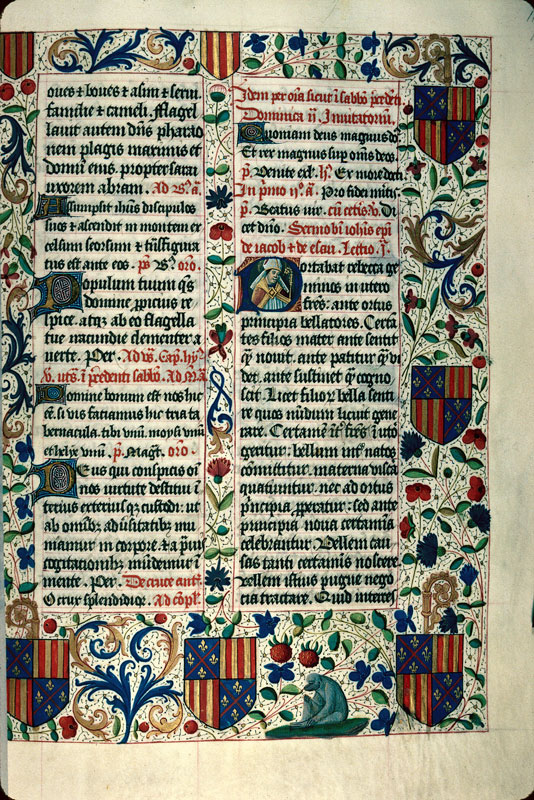 oues ⁊ boues ⁊ asini ⁊ serui
familie ⁊ cameli. flagel
lauit autem dñs pharao
nem plagis maximis et
domũ eius propter sarai
uxorem abram. Ad
Assumpsit ihũs discipulos
suos ⁊ ascendit in montem ex
celsum seorsum ⁊ trãsfigura
tus est ante eos. oro.
Populum tuum qs
domine propicius re
spice. atqz ab eo flagella
tue iracundie clementer a
uerte. Per. Ad Cap. hyr.
uts. ĩ precedenti sabbo. Ad
Domine bonum est nos hic
eẽ. si vis faciamus hic tria ta
bernacula. tibi vnũ. moysi vnũ
et helye vnũ. p. Mag. oro.
Deus qui conspicis oĩ
nos uirtute destitui ĩ
terius exteriusqz custodi. ut
ab omibz aduersitatibz mu
niamur in corpore. ⁊ a prauis
cogitationibz mũdemur ĩ
mente. Per. De cruce ant.
O crux splendidior. Ad copl.
Idem per oĩa sicut ĩ sabbo precedẽti
Dominica ij. Inuitatoriũ.
Quoniam deus magnus dõ
Et rex magnus sup omẽs deos.
p. Venite Ex more docti
In prĩo Pro fidei mitis
p. Beatus uir. cũ cetis Di
cet dño. Sermo bti iohis epi
de iacob ⁊ de esau. Lectio j.
Portabat rebecca ge
minos in utero
frẽs: ante ortus
principia bellatores. Certã
tes filios mater ante sentit
qz nouit. ante patitur qz vi
det. ante sustinet qz cogno
scit. Licet filioꝝ bella senti
re quos nũdum licuit gene
rare. Certamẽ frẽs ĩ utõ
geritur: bellum natos
comittitur. materna viscã
quatiuntur. nec ad ortus
prĩncipia pperatur: sed ante
principia noua certamĩa
celebrantur. Vellem cau
sas tanti certaminis noscere
vellem istius pugne nego
cia tractare. Quid interes